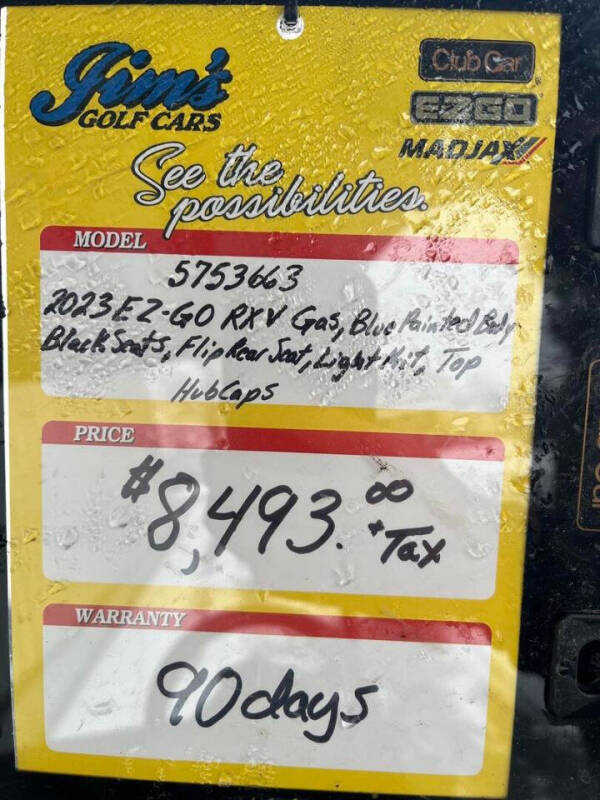 Jim's
GOLF CARS
Club Car
EZGO
MADJAX
See the
possibilities.
MODEL
5753663
2023 EZ-GO RXV Gas, Blue Painted Body
Black Seats, Flip Rear Seat, Light Kit, Top
HubCaps
PRICE
$8,493.00
+Tax
WARRANTY
90 days